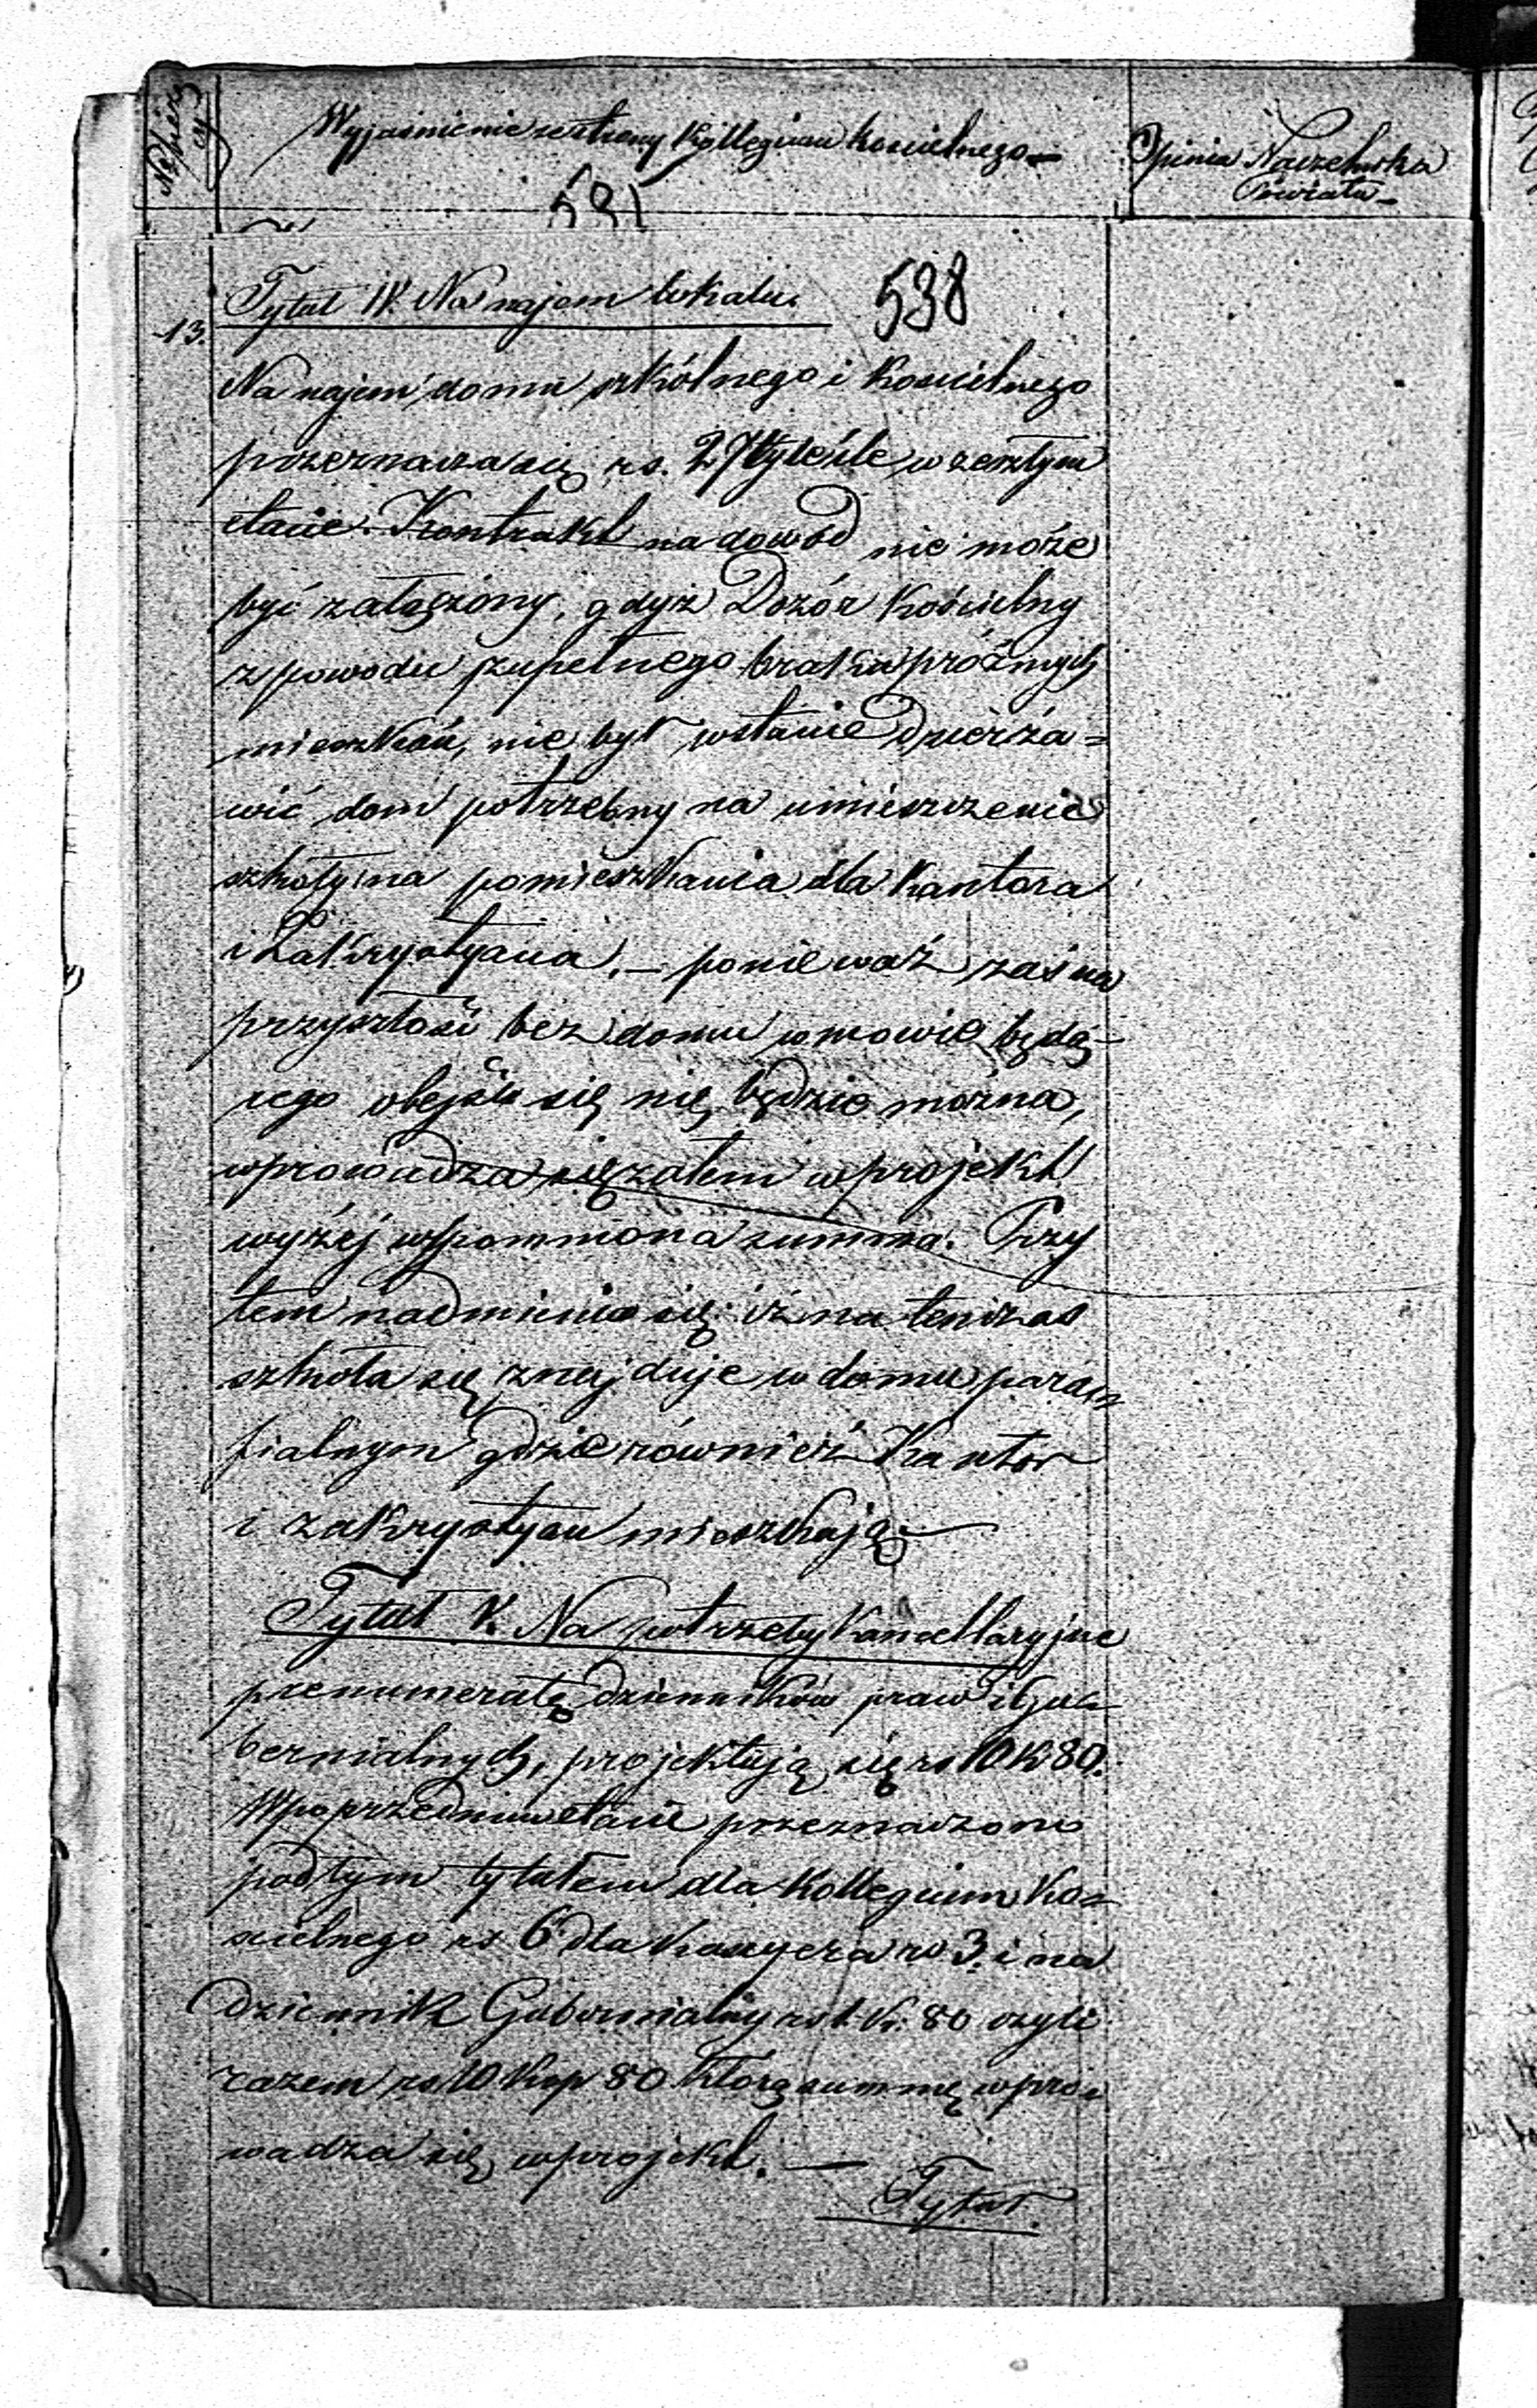 Wyjaśnienie ze strony Kollegium kościelnego
Opinia Naczelnika
Powiatu
538
Tytuł IV. Na najem lokalu.
13.
Na najem domu szkólnego i kościelnego
przeznacza się rs. 27 tyleźle w zeszłym
etacie. Kontrakt na dowód nie może
być załączony, gdyż Dozór Kościelny
z powodu zupełnego braku próżnych
mieszkań, nie był wstanie dzierża=
wić dom potrzebny na umieszczenie
szkoły i na pomieszkania dla Kantora
i Zakrystyana. – ponieważ zaś na
przyszłość bez domu w mowie będą-
cego obejść się nie będzie można,
wprowadza się zatem w projekt
wyżej wspomniona summa. Przy
tem nadmienia się iż na tenczas
szkoła się znajduje w domu para=
fialnym gdzie również Kantor
i zakrystyan mieszkają –
Tytuł V. Na potrzeby Kancellaryjne
prenumeratę dzienników praw i Gu=
bernialnych, projektują się rs 10 k 80.
W poprzednim etacie przeznaczono
pod tym tytułem dla Kollegium Ko=
ścielnego rs 6 dla Kassyera rs 3. i na
dziennik Gubernialny rs 1. k. 80 czyli
razem rs. 10 Kop 80 którą summę wpro=
wadza się w projekt. –
Tytuł.